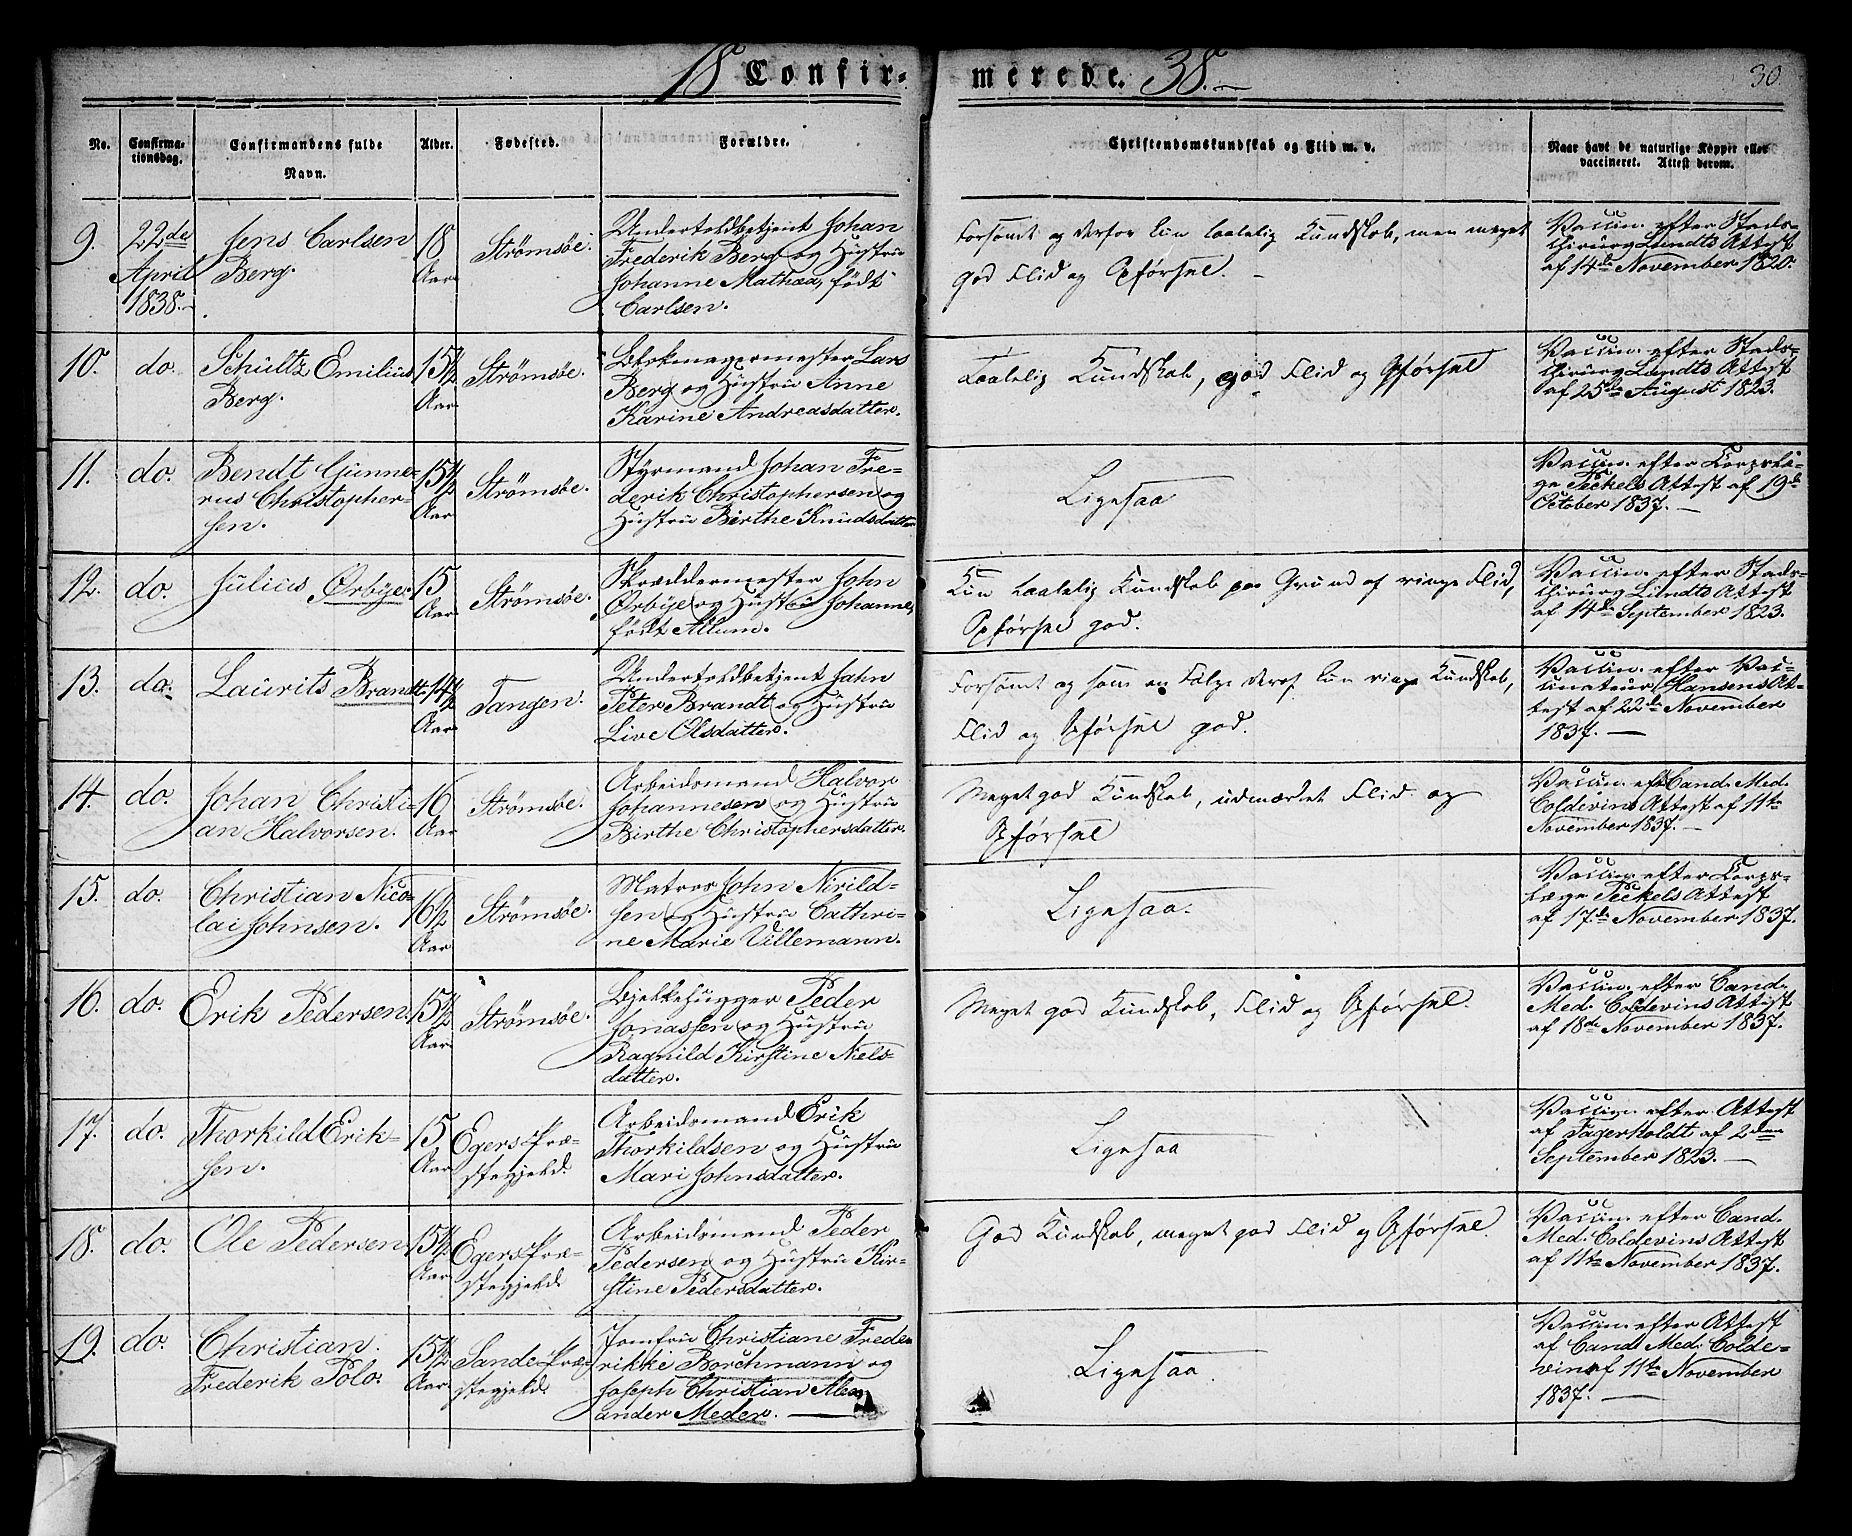 18 Confir-
merede. 38.
30.
No.
Confirma-
tionsdag.
Confirmandens fulde
Navn.
Alder.
Fødested.
Forældre.
Christendomskundskab og Flid m. v.
Naar havt de naturlige Kopper eller
vaccineret. Attest derom.
9.
22de
April
1838.
Jens Carlsen
Berg.
18
Aar
Strømsøe.
Undertoldbetjent Johan
Frederik Berg og Hustru
Johanne Mathea, født
Carlsen.
Forsømt og derfor kun taalelig Kundskab, men meget
god Flid og Opførsel.
Vaccin. efter Stads-
chirurg Lundts Attest
af 14de November 1820.
10.
do.
Schultz Emilius
Berg.
15½
Aar
Strømsøe.
Blokmagermester Lars
Berg og Hustru Anne
Karine Andreasdatter.
Taalelig Kundskab, god Flid og Opførsel
Vaccin. efter Stads-
chirurg Lundts Attest
af 25de August 1823.
11.
do.
Bendt Gunne-
rus Christopher-
sen.
15½
Aar
Strømsøe.
Styrmand Johan Fre-
derik Christophersen og
Hustru Birthe Knudsdatter
Ligesaa
Vaccin. efter Corpslæ-
ge Teckels Attest af 19de
October 1837.
12.
do.
Julius Ørbye
15
Aar
Strømsøe.
Skræddermester John
Ørbye og Hustru Johanne,
født Allum.
Kun taalelig Kundskab paa Grund af ringe Flid,
Opførsel god.
Vaccin. efter Stads-
chirurg Lundts Attest
af 14de September 1823.
13.
do.
Laurits Brandt.
14½
Aar
Tangen.
Undertoldbetjent John
Peter Brandt og Hustru
Live Olsdatter.
Forsømt og som en Følge deraf kun ringe Kundskab,
Flid og Opførsel god.
Vaccin. efter Vac-
cinateur Hansens At-
test af 22de November
1837.
14.
do.
Johan Christi-
an Halvorsen.
16
Aar
Strømsøe.
Arbeidsmand Halvor
Johannesen og Hustru
Birthe Christophersdatter.
Meget god Kundskab, udmærket Flid og
Opførsel
Vaccin. eft Cand. Med.
Coldevins Attest af 11te
November 1837.
15.
do.
Christian Nico-
lai Johnsen.
16½
Aar
Strømsøe.
Matros John Nirild-
sen og Hustru Cathri-
ne Marie Villemann.
Ligesaa.
Vaccin. efter Corps-
læge Teckels Attest
af 17de November 1837.
16.
do.
Erik Pedersen.
15½
Aar
Strømsøe.
Bjelkehugger Peder
Jonassen og Hustru
Ragnild Kirstine Niels-
datter.
Meget god Kundskab, Flid og Opførsel.
Vaccin. efter Cand.
Med. Coldevins Attest
af 18de November 1837.
17.
do.
Thorkild Erik-
sen.
15
Aar
Egers Præ-
stegjeld.
Arbeidsmand Erik
Thorkildsen og Hustru
Mari Johnsdatter.
Ligesaa
Vaccin. efter Attest
af Fagerholdt af 2den
September 1823.
18.
do.
Ole Pedersen
15½
Aar
Egers Præ-
stegjeld.
Arbeidsmand Peder
Pedersen og Hustru Kir-
stine Pedersdatter.
God Kundskab, meget god Flid og Opførsel.
Vaccin. efter Cand.
Med. Coldevins Attest
af 11te November 1837.
19.
do.
Christian
Frederik Polo.
15½
Aar
Sande Præ-
stegjeld.
Jomfru Christiane Frede-
rikke Borchmann og
Joseph Christian Alex-
ander Meder.
Ligesaa
Vaccin. efter Attest
af Cand. Med. Colde-
vins af 11te November
1837.